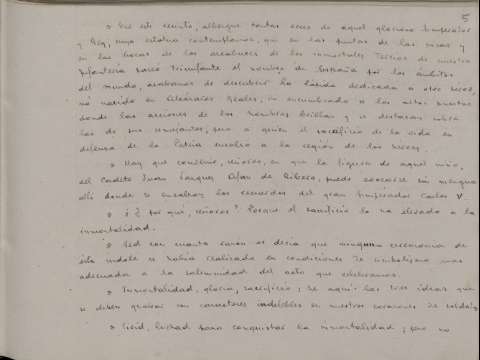 5
» En este recinto, albergue tantas veces de aquel glorioso Emperador
y Rey, cuya estatua contemplamos, que en las puntas de las picas y
en las bocas de los arcabuces de los inmortales Tercios de nuestra
Infantería paseó triunfante el nombre de España por los ámbitos
del mundo, acabamos de descubrir la lápida dedicada a otro héroe,
no nacido en Alcázares Reales, ni encumbrado a los altos puestos
donde las acciones de los hombres brillan y se destacan sobre
las de sus semejantes, pero a quien el sacrificio de la vida en
defensa de la Patria enalzó a la región de los héroes.
» Hay que convenir, señores, en que la figura de aquel niño,
del Cadete Juan Vázquez Afán de Ribera, puede asociarse sin mengua
allí donde se ensalzan los recuerdos del gran Emperador Carlos V.
» ¿Y por qué, señores? Porque el sacrificio lo ha elevado a la
inmortalidad.
» Ved con cuanta razón os decía que ninguna ceremonia de
esta índole se había realizado en condiciones de simbolismo más
adecuada a la solemnidad del acto que celebramos.
» Inmortalidad, gloria, sacrificio; he aquí las tres ideas que
se deben grabar con caracteres indelebles en nuestros corazones de soldados
» Vivid, luchad para conquistar la inmortalidad; pero no